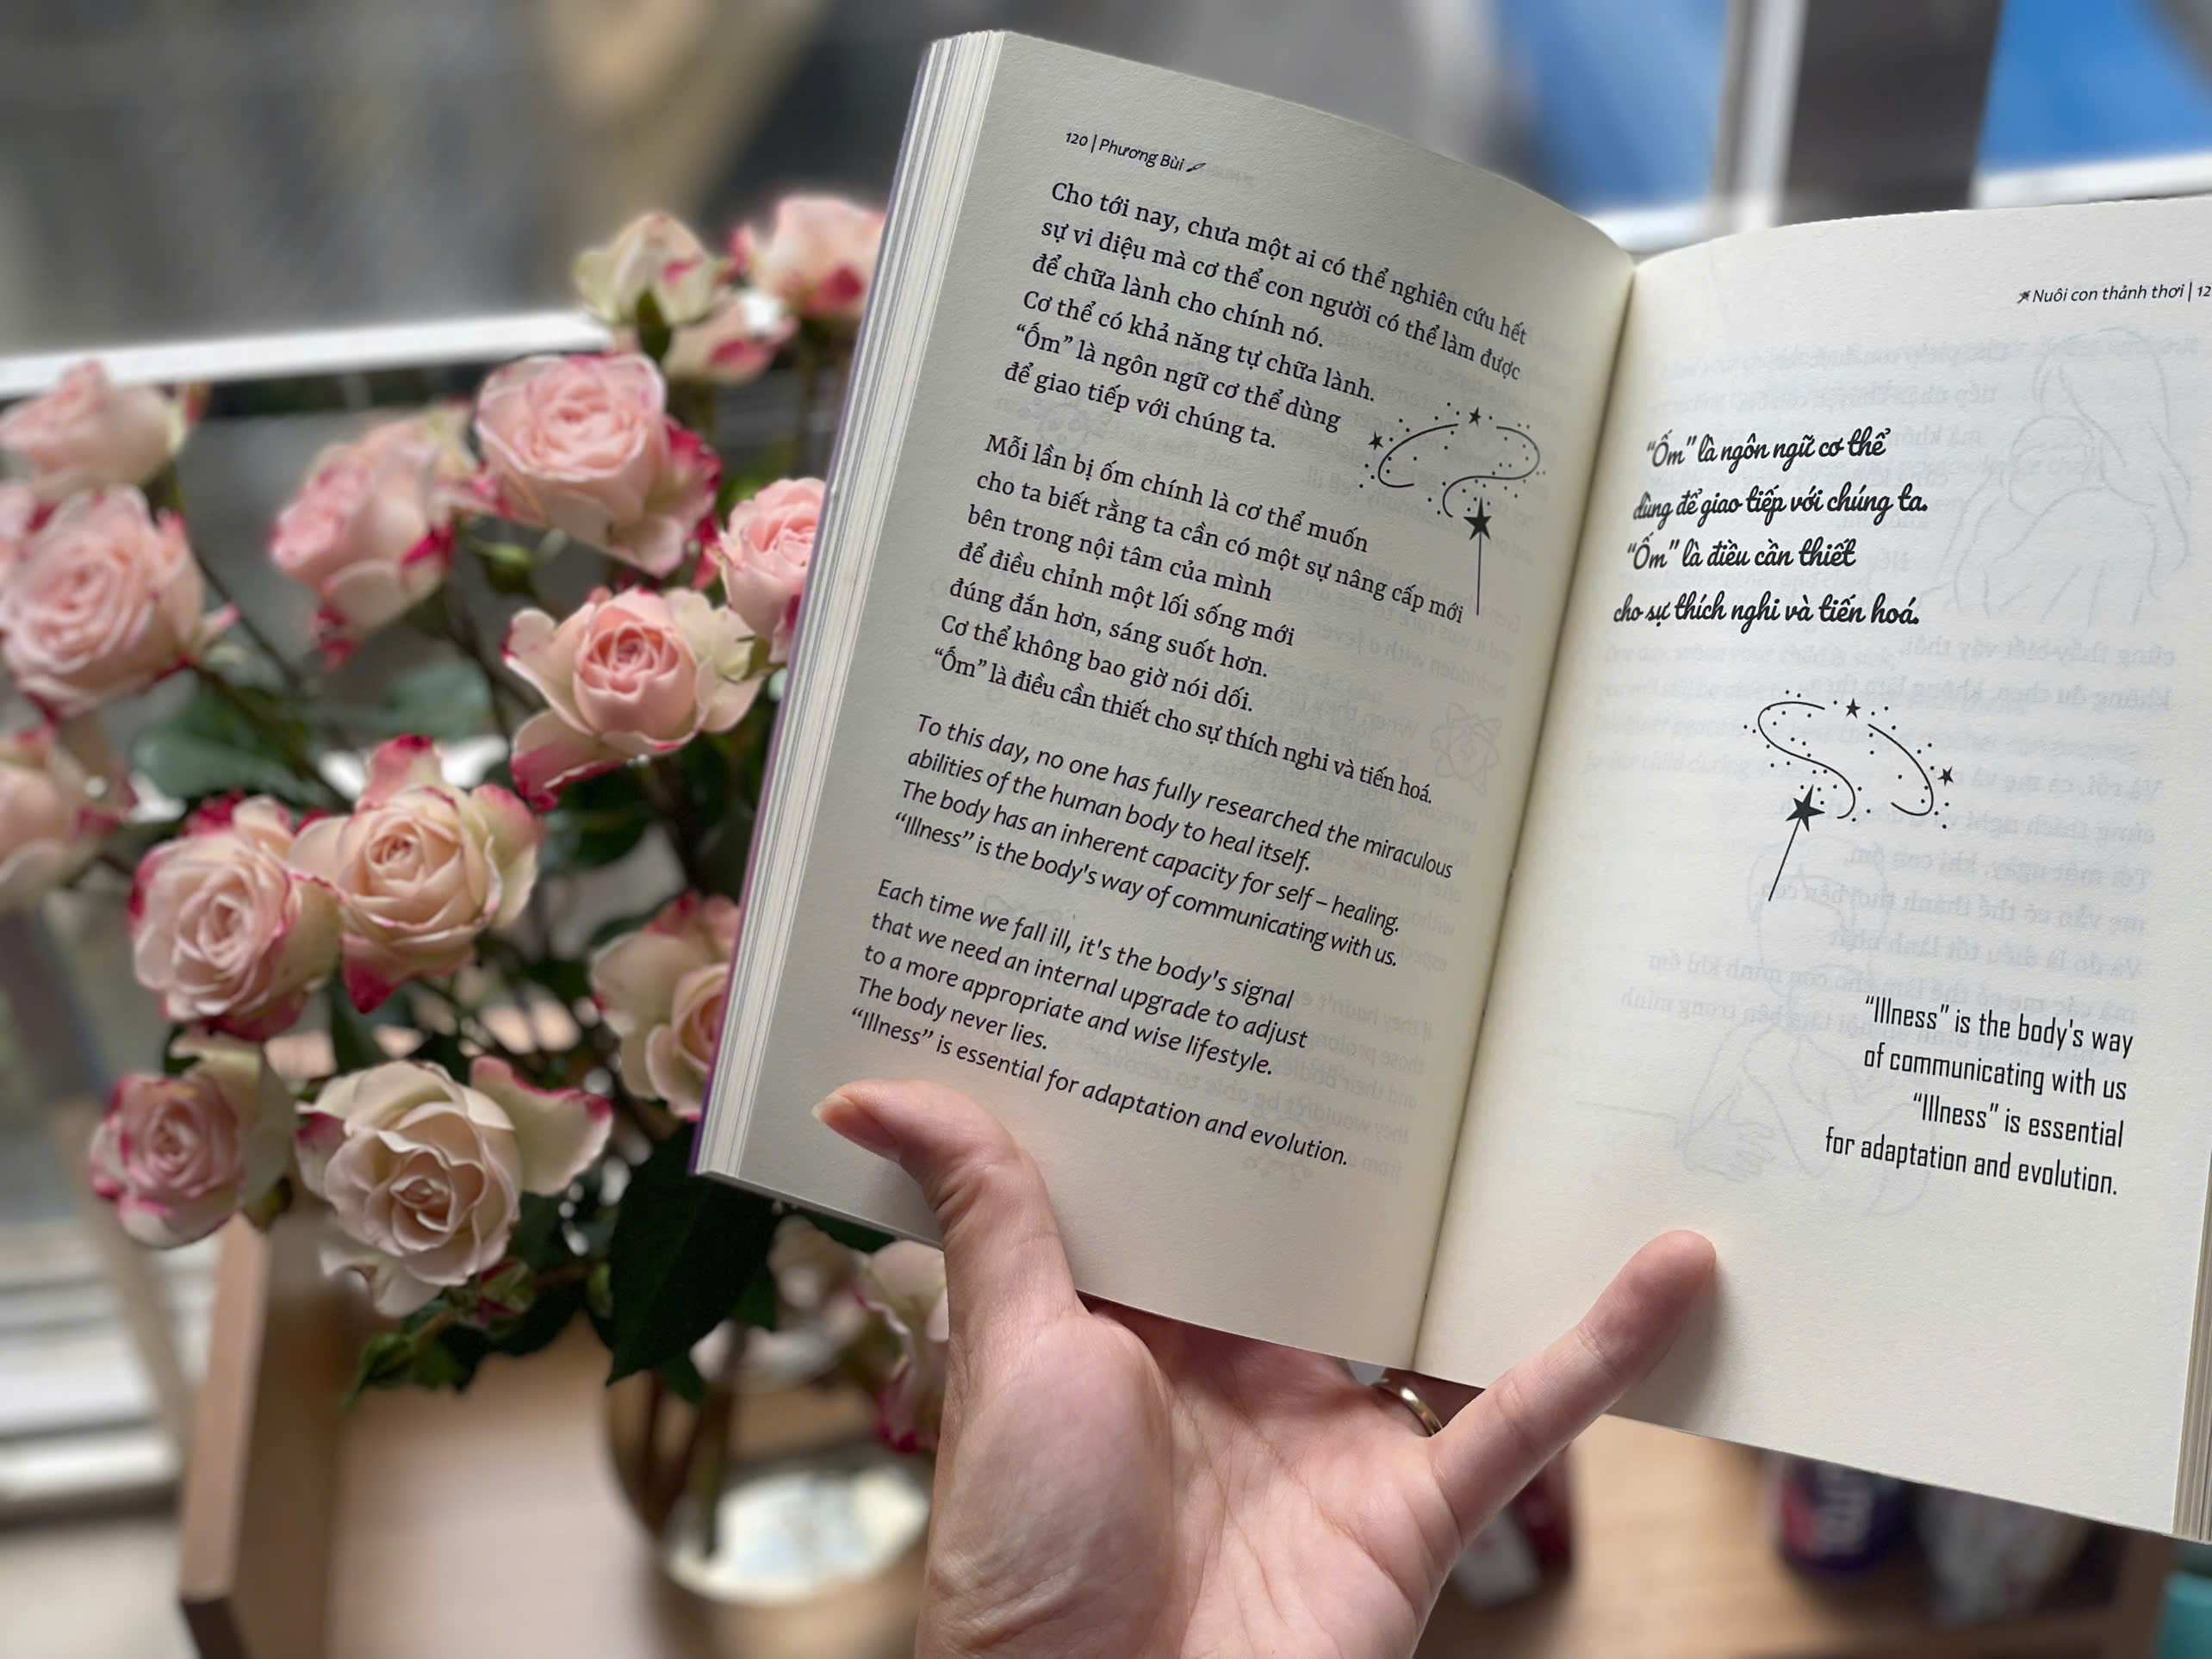 120 | Phương Bùi
Cho tới nay, chưa một ai có thể nghiên cứu hết
sự vi diệu mà cơ thể con người có thể làm được
để chữa lành cho chính nó.
Cơ thể có khả năng tự chữa lành.
“Ốm” là ngôn ngữ cơ thể dùng
để giao tiếp với chúng ta.
Mỗi lần bị ốm chính là cơ thể muốn
cho ta biết rằng ta cần có một sự nâng cấp mới
bên trong nội tâm của mình
để điều chỉnh một lối sống mới
đúng đắn hơn, sáng suốt hơn.
Cơ thể không bao giờ nói dối.
“Ốm” là điều cần thiết cho sự thích nghi và tiến hoá.
To this day, no one has fully researched the miraculous
abilities of the human body to heal itself.
The body has an inherent capacity for self – healing.
“Illness” is the body's way of communicating with us.
Each time we fall ill, it's the body's signal
that we need an internal upgrade to adjust
to a more appropriate and wise lifestyle.
The body never lies.
“Illness” is essential for adaptation and evolution.
Nuôi con thảnh thơi | 12
“Ốm” là ngôn ngữ cơ thể
dùng để giao tiếp với chúng ta.
“Ốm” là điều cần thiết
cho sự thích nghi và tiến hoá.
“Illness” is the body's way
of communicating with us
“Illness” is essential
for adaptation and evolution.